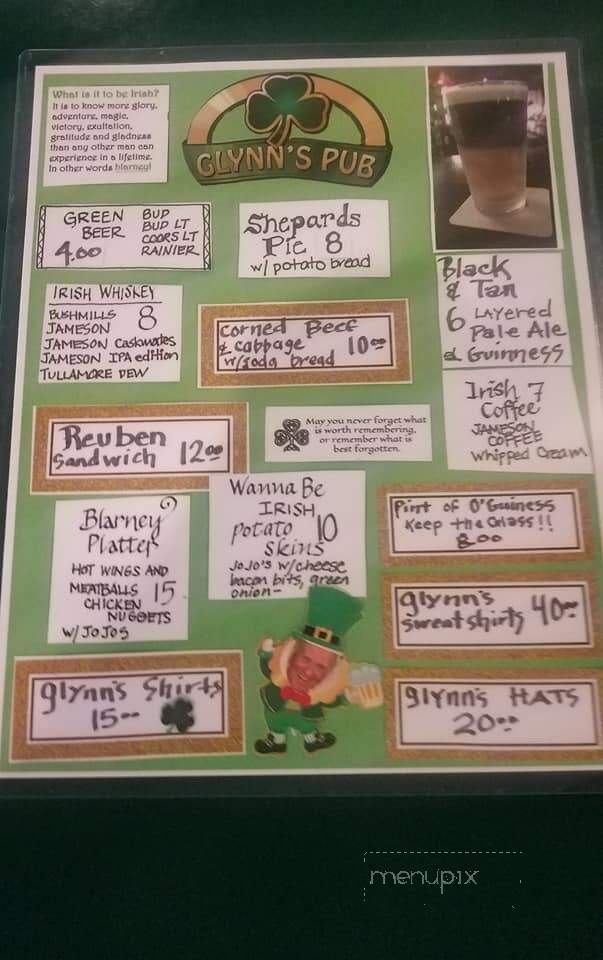 What is it to be Irish?
It is to know more glory,
adventure, magic,
victory, exultation,
gratitude and gladness
than any other man can
experience in a lifetime.
In other words blarney!
GLYNN'S PUB
GREEN
BEER
4.00
BUD
BUD LT
COORS LT
RAINIER
Shepards
Pie 8
w/ potato bread
Black
& Tan
6 LAYered
Pale Ale
& Guinness
IRISH WHISKEY
BUSHMILLS 8
JAMESON
JAMESON Caskmates
JAMESON IPA edition
TULLAMORE DEW
Corned Beef
& Cabbage 10.00
w/soda bread
Irish 7
Coffee
JAMESON
COFFEE
Whipped Cream
Reuben
Sandwich 12.00
May you never forget what
is worth remembering,
or remember what is
best forgotten.
Blarney
Platter
HOT WINGS AND
MEATBALLS 15
CHICKEN
NUGGETS
W/JOJOS
Wanna Be
IRISH
potato 10
skins
JoJo's w/cheese
bacon bits, green
onion-
Pint of O'Guiness
Keep the Glass!!
8.00
glynn's
sweatshirts 40.00
glynn's Shirts
15.00
glynn's HATS
20.00
menupix